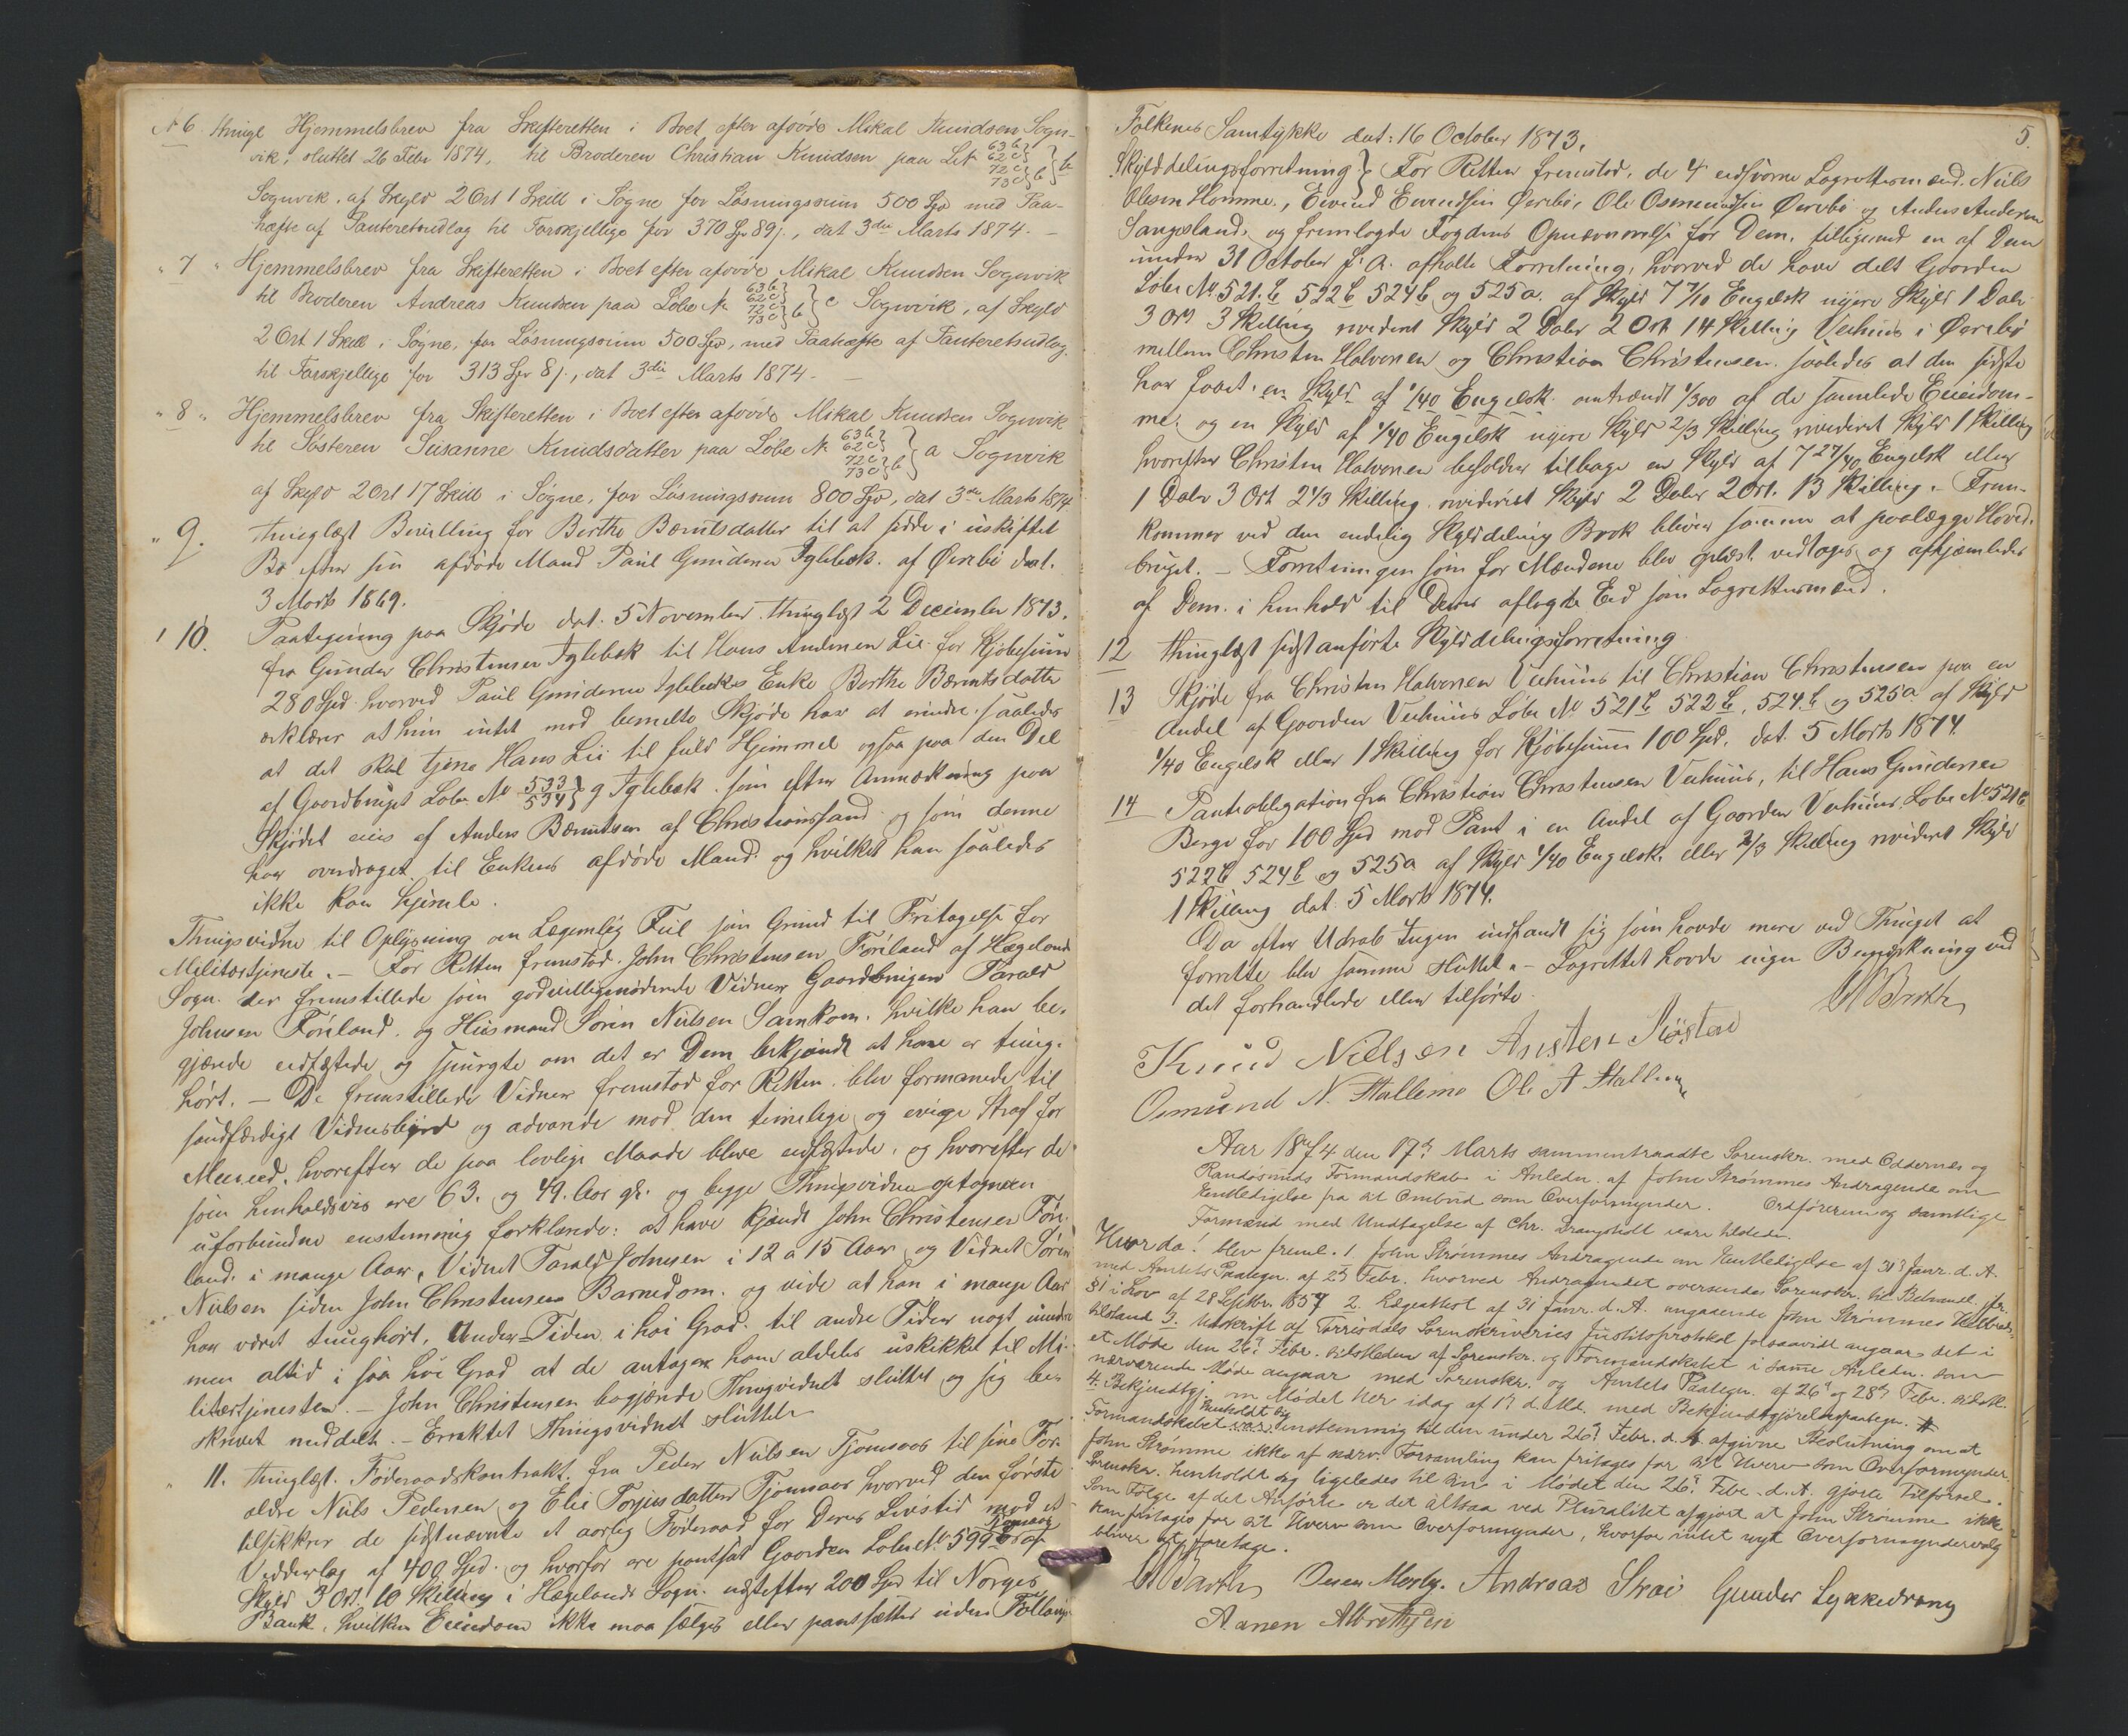 № 6. thingl Hjemmelsbrev fra Skifteretten i Boet efter afdöde Mikal Knudsen Sogn-
vik, sluttet 26 Febr 1874, til Broderen Christian Knudsen paa L № 63b 62c 72c 73c } b } b
Sognvik, af Skyld 2 Ort 1 Skill i Sögne for Løsningssum 500 Spd med Paa-
hæfte af Panteretsudlag til Forskjellige for 370 Spd 89 s., dat 3die Marts 1874. –
" 7 " Hjemmelsbrev fra Skifteretten i Boet efter afdöde Mikal Knudsen Sognvik
til Broderen Andreas Knudsen paa Löbe № 63b 62c 72c 73c } b } c Sognvik, af Skyld
2 Ort 1 Skill i Sögne, for Løsningssum 500 Spd, med Paahæfte af Panteretsudlag
til Forskjellige for 313 Spd 8 s., dat 3die Marts 1874. –
" 8 " Hjemmelsbrev fra Skifteretten i Boet efter afdöde Mikal Knudsen Sognvik
til Søsteren Susanne Knudsdatter paa Löbe № 63b 62c 72c 73c } b } a Sognvik
af Skyld 2 Ort 17 Skill i Sögne, for Løsningssum 800 Spd, dat 3die Marts 1874
" 9. thinglæst Bevilling for Berthe Berntsdatter til at sidde i uskiftet
Bo efter sin afdöde Mand Paul Gundersen Iglebæk af Øvrebö dat.
3 Marts 1869.
" 10. Paategning paa Skjöde dat. 5 November thinglæst 2 December 1873.
fra Gunder Christensen Iglebæk til Hans Andersen Lie for Kjöbesum
280 Spd. hvorved Paul Gundersen Iglebæks Enke Berthe Berntsdatter
erklærer at hun intet mod bemeldte Skjöde har at erindre, saaledes
at det skal tjene Hans Lie til fuld Hjemmel ogsaa paa den Del
af Gaardbruget Löbe № 533 534 } g Iglebæk som efter Anmærkning paa
Skjödet eies af Anders Berntsen af Christianssand og som denne
har overdraget til Enkens afdöde Mand og hvilket han saaledes
ikke kan hjemle.
Thingsvidne til Oplysning om Legemlig Feil som Grund til Fritagelse for
Militærtjeneste. – For Retten fremstod John Christensen Föreland af Hægeland
Sogn der fremstillede som godvilligmødende Vidner Gaardbruger Tarald
Johnsen Föreland og Husmand Sören Nielsen Samkom, hvilke han be-
gjærede edfæstede og spurgte om det er Dem bekjendt at han er tung-
hört. – De fremstillede Vidner fremstod for Retten, blev formanede til
sandfærdigt Vidnesbyrd og advarede mod den timelige og evige Straf for
Meneed, hvorefter de paa lovlige Maade bleve edfæstede, og hvorefter de
som henholdsvis ere 63. og 49. Aar gl. og begge Thingsvidne optagne
uforbundne enstemmig forklarede: at have kjendt John Christensen Före-
land i mange Aar, Vidnet Tarald Johnsen i 12 a 15 Aar og Vidnet Sören
Nielsen siden John Christensens Barnedom, og vide at han i mange Aar
har været tunghört. Under Tiden i höi Grad til andre Tider nogt mindre
men altid i saa höi Grad at de antager ham aldeles uskikket til Mi-
litærtjenesten. – John Christensen begjærede Thingsvidnet sluttet og sig be-
skrevet meddelt. – Erraktet Thingsvidnet sluttet
" 11. thinglæst Föderaadskontrakt fra Peder Nielsen Tjomsaas til sine For-
ældre Niels Pedersen og Elie Torjusdatter Tjomsaas hvorved den første
tilsikkrer de sidstnævnte et aarlig Föderaad for Deres Livstid mod et
Vedderlag af 400 Spd. og hvorfor ere pantsat Gaarden Löbe № 599 b Tjomsaas af
Skyld 3 Ort 10 Skilling i Hægelands Sogn, næstefter 200 Spd til Norges
Bank, hvilken Eiendom ikke maa sælges eller pantsættes uden Föllaugs
5.
Folkenes Samtykke dat: 16 October 1873.
Skylddelingsforretning } For Retten fremstod de 4 eedsvorne Lagrettesmænd Niels
Olesen Homme, Eivind Evendsen Øvrebö, Ole Osmundsen Øvrebö og Anders Andersen
Sangesland, og fremlagde Fogdens Opnævnnelse for Dem, tilligemed en af Dem
under 31 October f. A. afholte Forretning, hvorved de have delt Gaarden
Löbe № 521.b 522b 524b og 525a. af Skyld 7 7/10 Engelsk nyere Skyld 1 Daler
3 Ort 3 Skilling revideret Skyld 2 Daler 2 Ort 14 Skilling Vehuus i Øvrebö
mellem Christen Halvorsen og Christian Christensen saaledes at den sidste
har faaet en Skyld af 1/40 Engelsk omtrændt 1/300 af de samlede Eiendom-
me, og en Skyld af 1/40 Engelsk nyere Skyld 2/3 Skilling revideret Skyld 1 Skilling
hvorefter Christen Halvorsen beholder tilbage en Skyld af 7 27/40 Engelsk eller
1 Daler 3 Ort 2 1/3 Skilling revideret Skyld 2 Daler 2 Ort. 13 Skilling. – Frem-
kommer ved den endelig Skylddeling Brøk bliver samme at paalægge Hoved-
bruget. – Forretningen som for Mændene blev oplæst vedtages og afhjemledes
af Dem i henhold til Deres aflagte Eed som Lagrettesmænd.
12 thinglæst sidstanförte Skylddelingsforretning
13 Skjöde fra Christen Halvorsen Vehuus til Christian Christensen paa en
Andel af Gaarden Vehuus Löbe № 521b 522b, 524b og 525a af Skyld
1/40 Engelsk eller 1 Skilling for Kjöbesum 100 Spd. dat. 5 Marts 1874.
14 Panteobligation fra Christian Christensen Vehuus, til Hans Gundersen
Berge for 100 Spd mod Pant i en Andel af Gaarden Vehuus Löbe № 521b
522b 524b og 525a af Skyld 1/40 Engelsk eller 2/3 Skilling revideret Skyld
1 Skilling dat. 5 Marts 1874.
Da efter Udraab Ingen indfandt sig som havde mere ved Thinget at
forrette blev samme sluttet. – Lagrettet havde ingen Bemærkning ved
det forhandlede eller tilførte.
Barth
Knud Nielsen Ansten Røsta
Osmund N. Stallemo Ole A Stallemo
Aar 1874 den 17de Marts sammentraadte Sorenskr. med Oddernes og
Randøsunds Formandskab i Anledn. af John Strømmes Andragende om
Entledigelse fra sit Ombud som Overformynder. Ordføreren og samtlige
Formænd med Undtagelse af Chr. Drangsholt vare tilstede.
Hvorda! blev freml. 1. John Strømmes Andragende om Entledigelse af 31 Janr. d. A.
med Amtets Paategn. af 2 Febr. hvorved Andragendet oversendes Sorenskr. til Behandl. jfr.
§ 1 i Lov af 28 Septbr. 1857 2. Lægeattest af 31 Janr. d. A. angaaende John Strømmes Helbreds-
tilstand 3. Udskrift af Torrisdals Sorenskriveries Justitsprotokol forsaavidt angaar det i
et Møde den 26de Febr. sidstleden af Sorenskr. og Formandskabet i samme Anledn. som
nærværende Møde angaar med Sorenskr. og Amtets Paategn. af 26de og 28de Febr. sidstl.
4. Bekjendtgj. om Mødet her idag af 1 d. Md. med Bekjendtgjørelsespaategn.
Formandskabet henholdt sig enstemmig til den under 26de Febr. d. A. afgivne Beslutning om at
John Strømme ikke af nærv. Forsamling kan fritages for sit Hverv som Overformynder.
Sorenskr. henholdt sig ligeledes til sin i Mødet den 26de Febr. d. A. gjorte Tilførsel.
Som Følge af det Anførte er det altsaa ved Pluralitet afgjort at John Strømme ikke
kan fritages for sit Hverv som Overformynder, hvorfor intet nyt Overformyndervalg
bliver at foretage.
Barth Osen Mosby. Andreas Strai Gunder Lykkedrang
Aanen Albrethsen